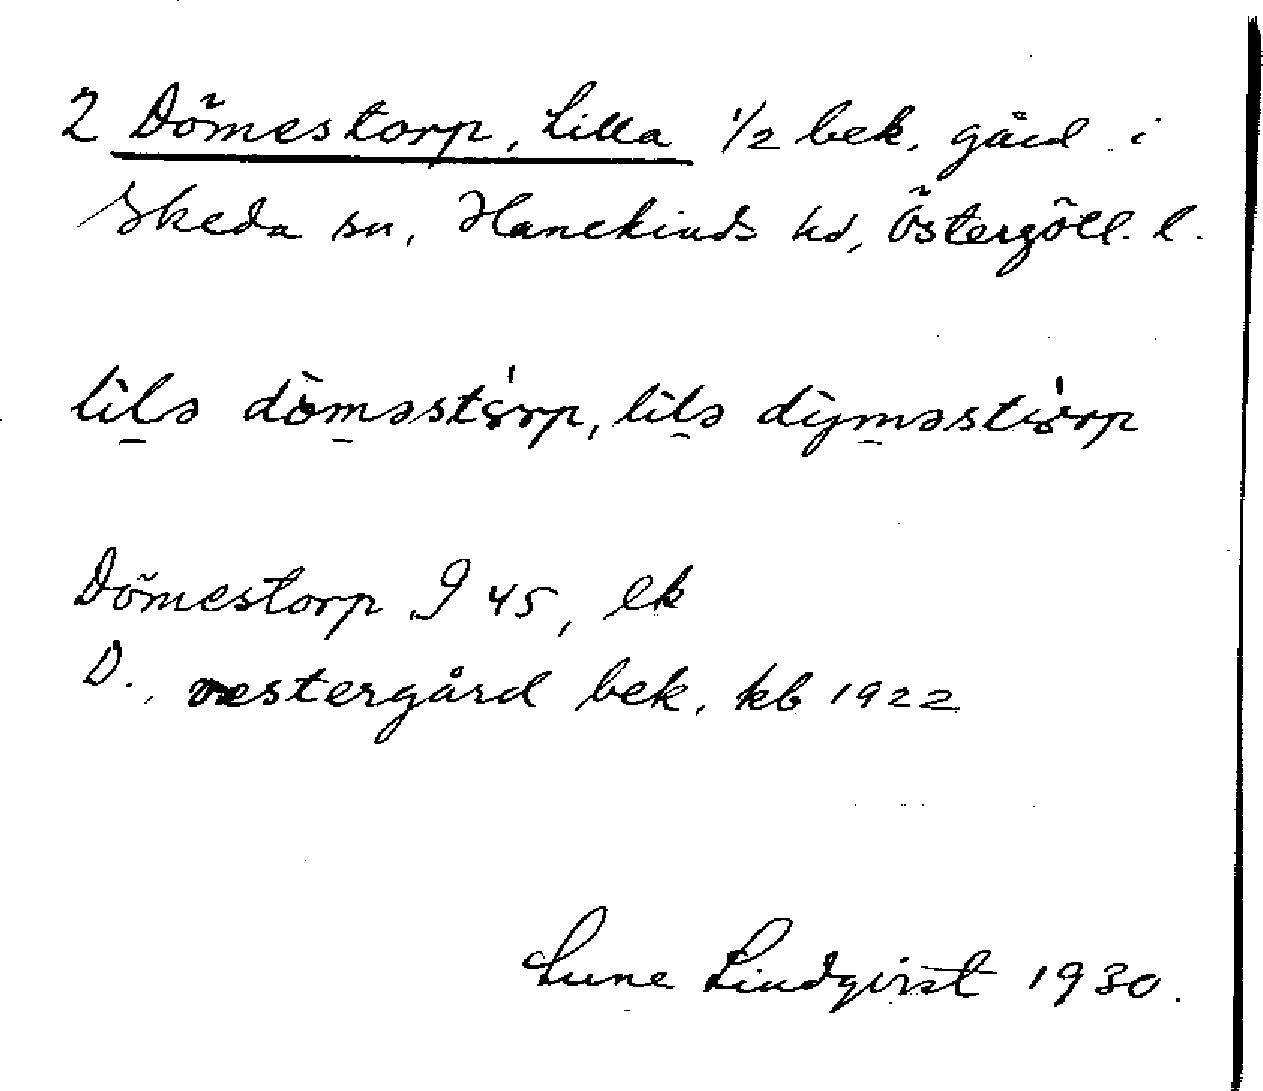 2 Dömestorp, Lilla 1/2 bek. gård i
Skeda sn, Hanekinds hd, Östergötl. l.
lilə döməstorp, lilə dyməstorp
Dömestorp J 45, ek
D., vestergård bek. kb 1922
Sune Lindqvist 1930.